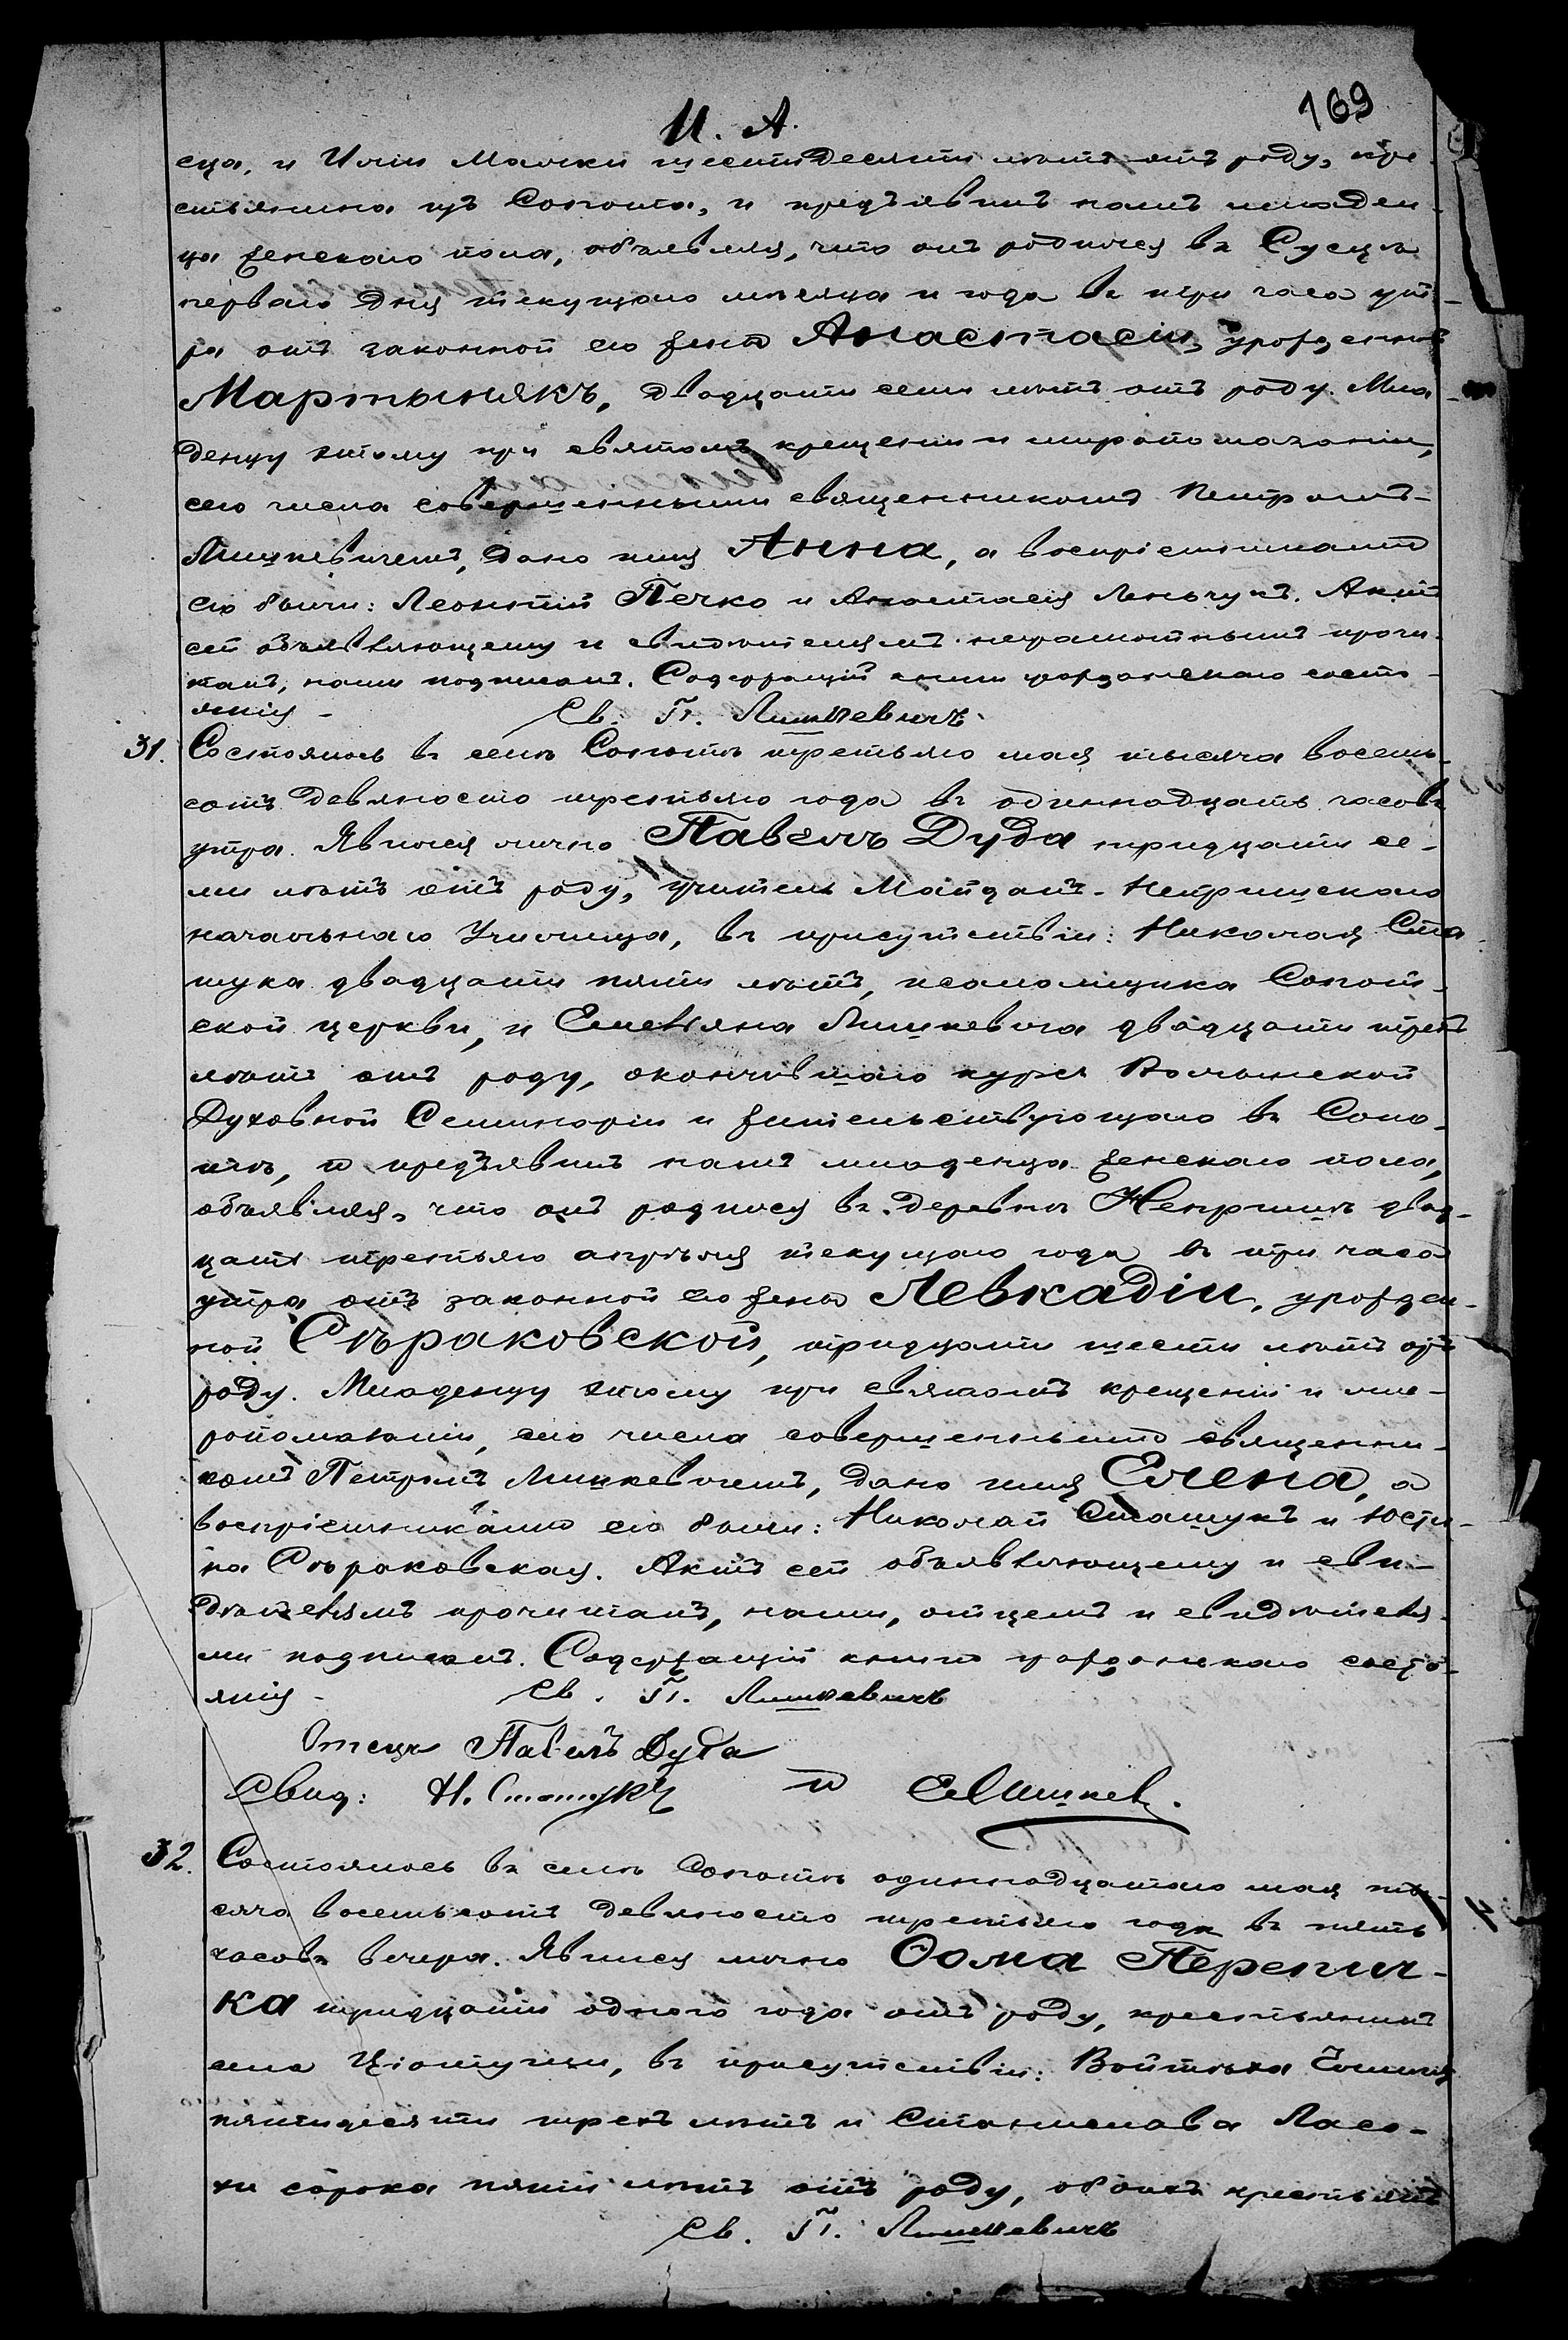 169
И. А.
сца, и Иліи Малики шестидесяти лѣтъ отъ роду, кре-
стьянина изъ Сопота, и предъявилъ намъ младен-
ца женскаго пола, объявляя, что онъ родился въ Сусцѣ
перваго дня текущаго мѣсяца и года въ три часа ут-
ра отъ законной его жены Анастасіи, урожденной
Мартынякъ, двадцати семи лѣтъ отъ роду. Мла-
денцу этому при святомъ крещеніи и миропомазаніи,
сего числа совершенными священникомъ Петромъ
Лишкевичемъ, дано имя Анна, а воспріемниками
его были: Леонтій Печко и Анастасія Линчукъ. Актъ
сей объявляющему и свидѣтелямъ неграмотнымъ прочи-
танъ, нами подписанъ. Содержащій книги гражданскаго состо-
янія - Св. П. Лишкевичъ
31. Состоялось въ селѣ Сопотѣ третьяго мая тысяча восемь-
сотъ девяносто третьяго года въ одиннадцать часовъ
утра. Явился лично Павелъ Дуда тридцати се-
ми лѣтъ отъ роду, учитель Майданъ-Непришскаго
начальнаго Училища, въ присутствіи: Николая Ста-
шука двадцати пяти лѣтъ, псаломщика Сопот-
ской церкви, и Емельяна Лишкевича двадцати трехъ
лѣтъ отъ роду, окончившаго курсъ Волынской
Духовной Семинаріи и жительствующаго въ Сопо-
тѣ, и предъявилъ намъ младенца женскаго пола,
объявляя, что онъ родился въ деревнѣ Непришъ двад-
цать третьяго апрѣля текущаго года въ три часа
утра отъ законной его жены Левкадіи, урожден-
ной Сѣраковской, тридцати шести лѣтъ отъ
роду. Младенцу этому при святомъ крещеніи и ми-
ропомазаніи, сего числа совершенными священни-
комъ Петромъ Лишкевичемъ, дано имя Елена, а
воспріемниками его были: Николай Сташукъ и Юсти-
на Сѣраковская. Актъ сей объявляющему и сви-
дѣтелямъ прочитанъ, нами, отцемъ и свидѣтеля-
ми подписанъ. Содержащій книги гражданскаго состо-
янія - Св. П. Лишкевичъ
Отецъ Павелъ Дуда
Свид: Н. Сташукъ и Е. Лишкев.
32. Состоялось въ селѣ Сопотѣ одиннадцатаго мая ты-
сяча восемьсотъ девяносто третьяго года въ пять
часовъ вечера. Явился лично Ѳома Перепич-
ка тридцати одного года отъ роду, крестьянинъ
села Ціотуши, въ присутствіи: Войтѣха
пятидесяти трехъ лѣтъ и Станислава Ласо-
ти сорока пяти лѣтъ отъ роду, обоихъ крестьянъ
Св. П. Лишкевичъ